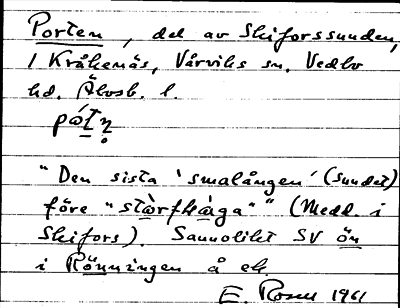 Porten, del av Skiforssunden,
/ Kråkenäs, Vårviks sn. Vedbo
hd. Älvsb. l.
pót̠n̥
"Den sista 'smalången' (sundet)
före "stὼrfkὼga"" (Medd. i
Skifors). Sannolikt SV ön
i Rönningen å ek.
E. Rosell 1961